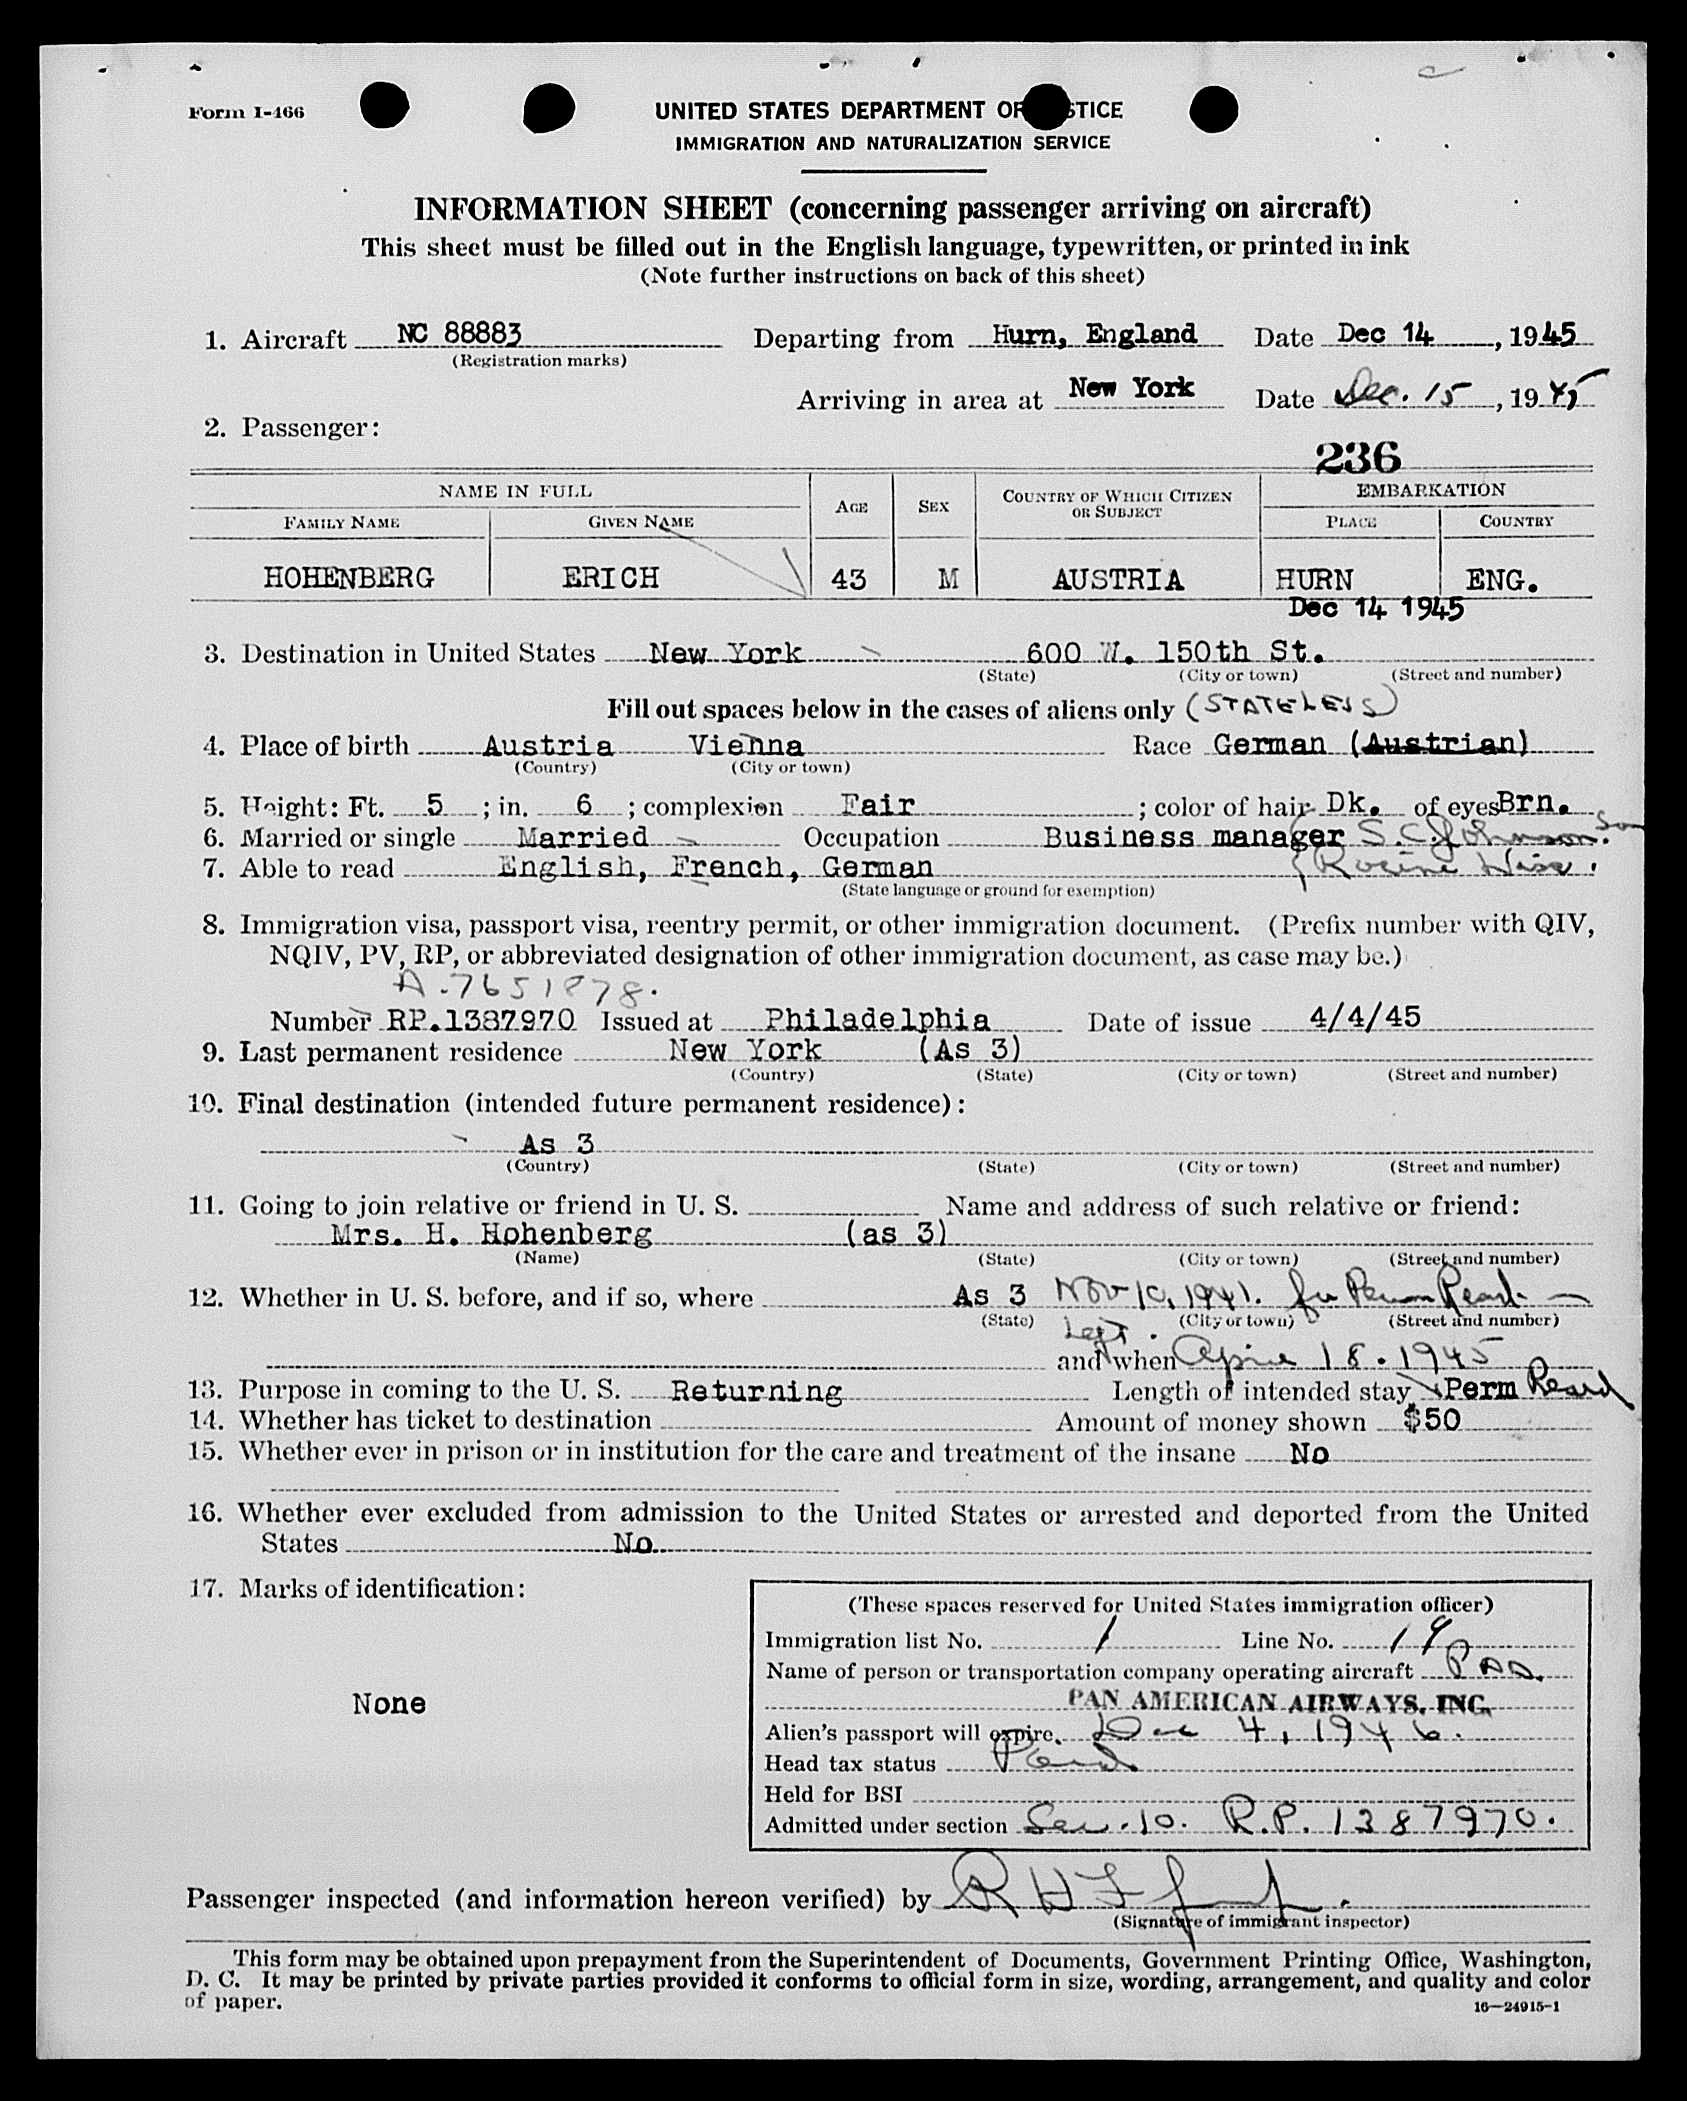 Form I-466
UNITED STATES DEPARTMENT OF STICE
IMMIGRATION AND NATURALIZATION SERVICE
INFORMATION SHEET (concerning passenger arriving on aircraft)
This sheet must be filled out in the English language, typewritten, or printed in ink
(Note further instructions on back of this sheet)
1. Aircraft NC 88883 Departing from Hurn, England Date Dec 14, 1945
(Registration marks)
Arriving in area at New York Date Dec. 15, 1945
2. Passenger:
236
NAME IN FULL AGE SEX COUNTRY OF WHICH CITIZEN OR SUBJECT EMBARKATION
FAMILY NAME GIVEN NAME PLACE COUNTRY
HOHENBERG ERICH 43 M AUSTRIA HURN ENG.
Dec 14 1945
3. Destination in United States New York 600 W. 150th St.
(State) (City or town) (Street and number)
Fill out spaces below in the cases of aliens only (STATELESS)
4. Place of birth Austria Vienna Race German (Austrian)
(Country) (City or town)
5. Height: Ft. 5; in. 6; complexion Fair; color of hair Dk. of eyes Brn.
6. Married or single Married Occupation Business manager S.C. Johnson Son
7. Able to read English, French, German Racine Wisc.
(State language or ground for exemption)
8. Immigration visa, passport visa, reentry permit, or other immigration document. (Prefix number with QIV,
NQIV, PV, RP, or abbreviated designation of other immigration document, as case may be.)
A-7651878.
Number RP.1387970 Issued at Philadelphia Date of issue 4/4/45
9. Last permanent residence New York (As 3)
(Country) (State) (City or town) (Street and number)
10. Final destination (intended future permanent residence):
As 3
(Country) (State) (City or town) (Street and number)
11. Going to join relative or friend in U. S. Name and address of such relative or friend:
Mrs. H. Hohenberg (as 3)
(Name) (State) (City or town) (Street and number)
12. Whether in U. S. before, and if so, where As 3 Nov 10, 1941. for Perm Resid.
(State) (City or town) (Street and number)
Left.
and when April 18. 1945
13. Purpose in coming to the U. S. Returning Length of intended stay Perm Resid
14. Whether has ticket to destination Amount of money shown $50
15. Whether ever in prison or in institution for the care and treatment of the insane No
16. Whether ever excluded from admission to the United States or arrested and deported from the United
States No
17. Marks of identification:
None
(These spaces reserved for United States immigration officer)
Immigration list No. 1 Line No. 19
Name of person or transportation company operating aircraft PAA.
PAN AMERICAN AIRWAYS, INC.
Alien's passport will expire Dec 4, 1946.
Head tax status Paid
Held for BSI
Admitted under section Sec. 10. R.P. 1387970.
Passenger inspected (and information hereon verified) by
(Signature of immigrant inspector)
This form may be obtained upon prepayment from the Superintendent of Documents, Government Printing Office, Washington,
D. C. It may be printed by private parties provided it conforms to official form in size, wording, arrangement, and quality and color
of paper.
16—24915-1